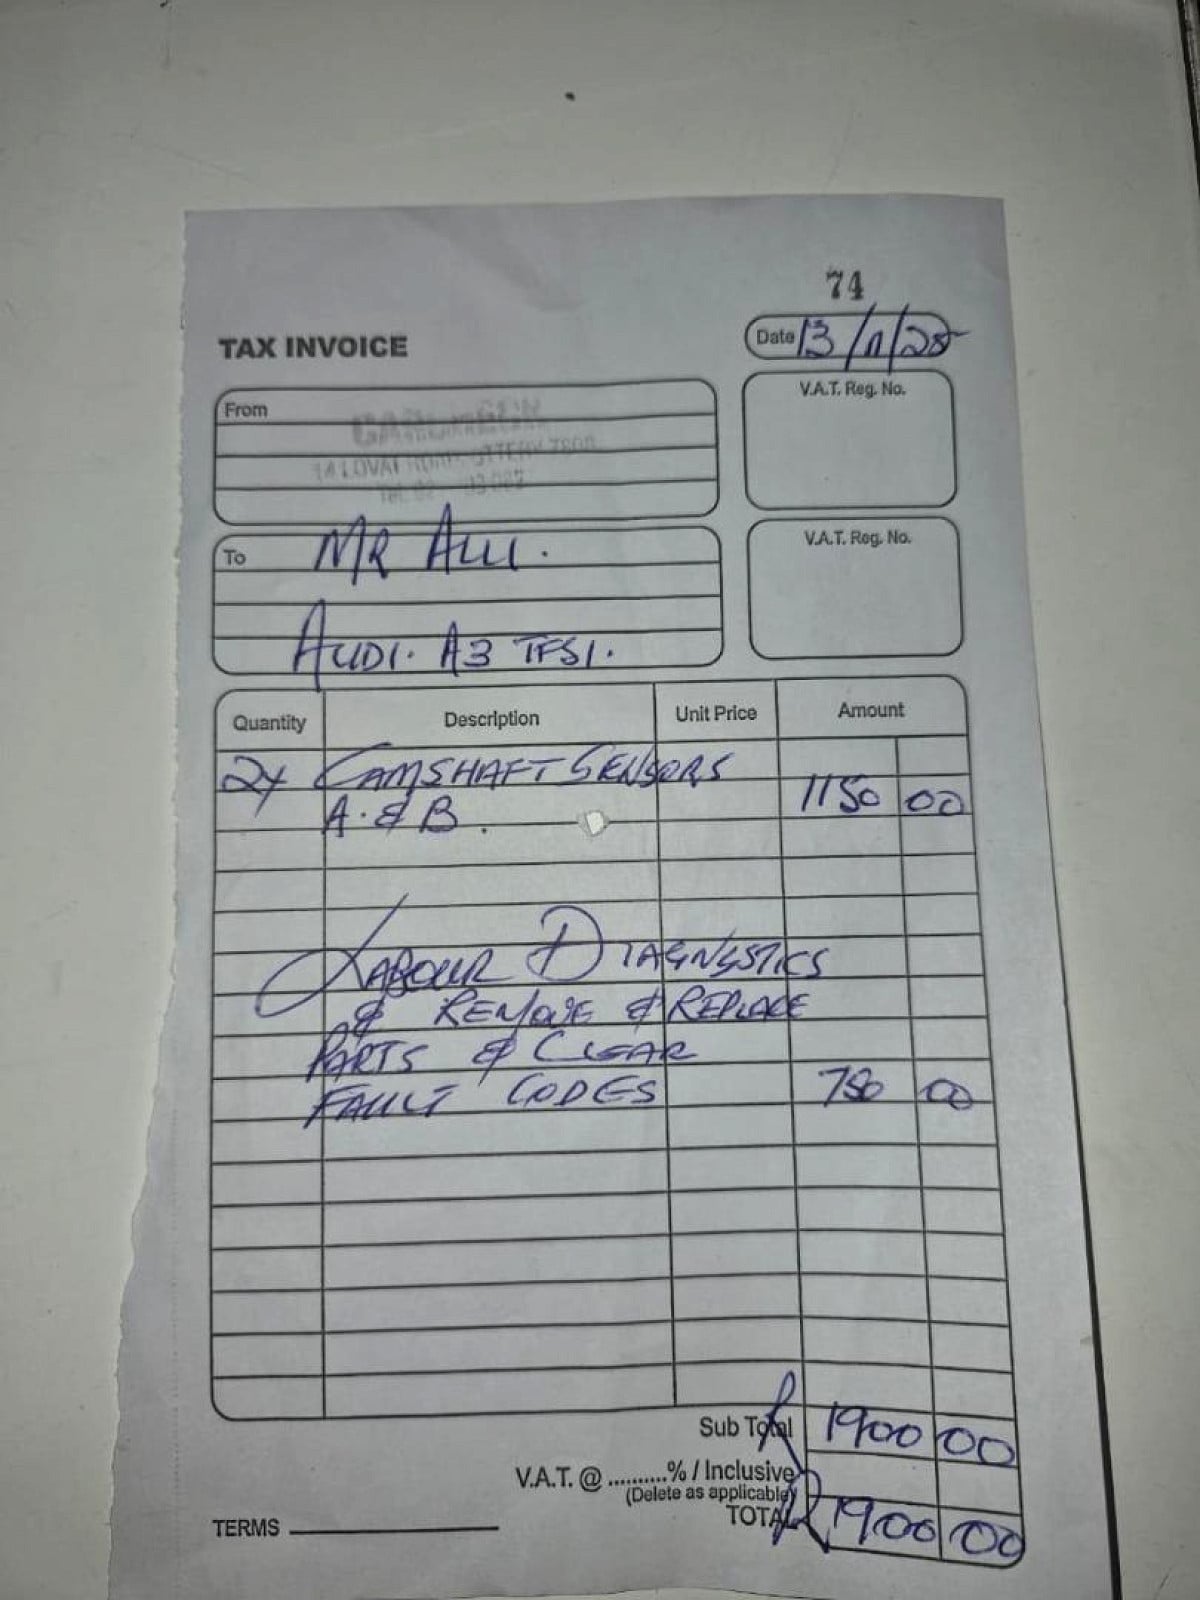 74
TAX INVOICE
Date 13/11/25
From
V.A.T. Reg. No.
14 LOVAT OTTERY 7800
To MR ALLI.
V.A.T. Reg. No.
AUDI. A3 TFSI.
Quantity Description Unit Price Amount
2x CAMSHAFT SENSORS
A. & B. 1150 00
LABOUR DIAGNSTICS
& REMOVE & REPLACE
PARTS & CLEAR
FAULT CODES 750 00
Sub Total R 1900 00
V.A.T. @ ..........% / Inclusive
(Delete as applicable)
TOTAL R 1900 00
TERMS